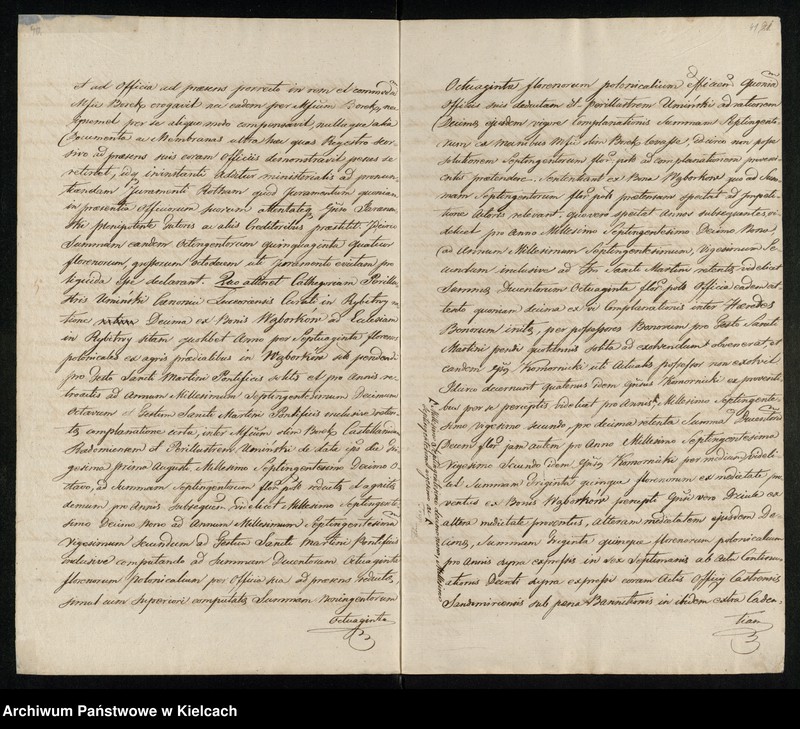 et ad Officia ad præsens porrecto in rem et commodum
Mfci Borek erogavit nec eadem per Mficum Borek, nec
quomet per se aliquo modo compensavit, nullasque alia
Documenta ac Membranas ultra hac quas Regestro
sivo ad præsens suis coram Officiis demonstravit penes se
retinet, idq in instanti Adstus ministerialis ad pronun
tiandam Juramenti Rotham quod Juramentum quoniam
in præsentia Officiorum suorum attentatq Gsus Taran
ski principaliter Actores ac aliis Creditoribus præstitit. Idcirco
Summam eandem Octingentorum quinquaginta quatuor
florenorum, grossorum octodecim uti Juramento evictam pro
sequenda esse declarant. Quo attinet Cathegoriam Perillu
stris Uminski Canonici Curati in Rybitwy ra
tione Decima ex Bonis Wyborków ad Ecclesiam
in Rybitwy sitam quolibet Anno per Septuaginta florenos
polonicales ex agris prædialibus in Wyborków sub pendendi
pro festo Sancti Martini Pontificis solitis et pro Annis re
troactis ad Annum Millesimum Septingentesimum Decimum
Octavum et Festum Sancti Martini Pontificis inclusive reten
tis complanatione certa, inter Mficum olim Borek Castellanum
et Perillustrem Uminski de data ipsa die Tri
gesima prima Augusti Millesimo Septingentesimo Decimo O
ctavo, ad Summam Septingentorum flor: poll: redactis et agnitis
demum pro Annis subsequen: videlicet Millesimo Septingente
simo Decimo Nono ad Annum Millesimum Septingentesimum
Vigesimum Secundum ad Festum Sancti Martini Pontificis
inclusive computando ad Summam Ducentorum Octuaginta
florenorum Polonicalium per Officia hic ad præsens redactis,
simul cum Superiori computatis Summam Noningentorum
Octuaginta
Octuaginta florenorum polonicalium efficien: Quoniam
Officia suis deductum et Perillustrem Uminski ad rationem
Decima ejusdem vigore Complanationis Summam Septingento
rum ex manibus Mfci olim Borek levasse, idcirco non posse
solutionem Septingentorum flor: poll: ad complanationem proveni
entis prætendere. Sententiant ex Bona Wyborków quo ad Sum
mam Septingentorum flor: poll: prætensam spectat ad Impeti
tione Actoris relevant. quo vero spectat Annos subsequentes, vi
delicet pro Anno Millesimo Septingentesimo Decimo Nono,
ad Annum Millesimum Septingentesimum, Vigesimum Se
cundum inclusive ad Fm Sancti Martini retentis, videlicet
Summa Ducentorum Octuaginta flor: poll: Officia eadem at
tento quoniam decima ex vi Complanationis inter Hæredes
Bonorum inita, per possessores Bonorum pro Festo Sancti
Martini pendi quotannis solita ad exsolvendum obvenerat, et
eandem Gsus Komornicki uti Actualis possessor non exsolvit
Idcirco decernunt quatenus idem Gsus Komornicki ex proventi
bus per se perceptis videlicet pro Annis Millesimo Septingente
simo vigesimo secundo, pro decima retenta Summam Ducentorum
Decem flor: jam autem pro Anno Millesimo Septingentesimo
Vigesimo Secundo idem Gsus Komornicki per medium videli
cet Summam Triginta quinque florenorum ex medietate pro
ventus ex Bonis Wyborków percepti Gsus vero ex
altera medietate proventus, alteram medietatem ejusdem De
cima, Summam Triginta quinque florenorum polonicalium
pro Annis supra expressis in sex Septimanis ab Actu Condescen
sionis supra expressi coram Actis Officij Castrensis
Sandomiriensis sub pæna Bannitionis in ibidem extra Caden
tiam
Archiwum Państwowe w Kielcach